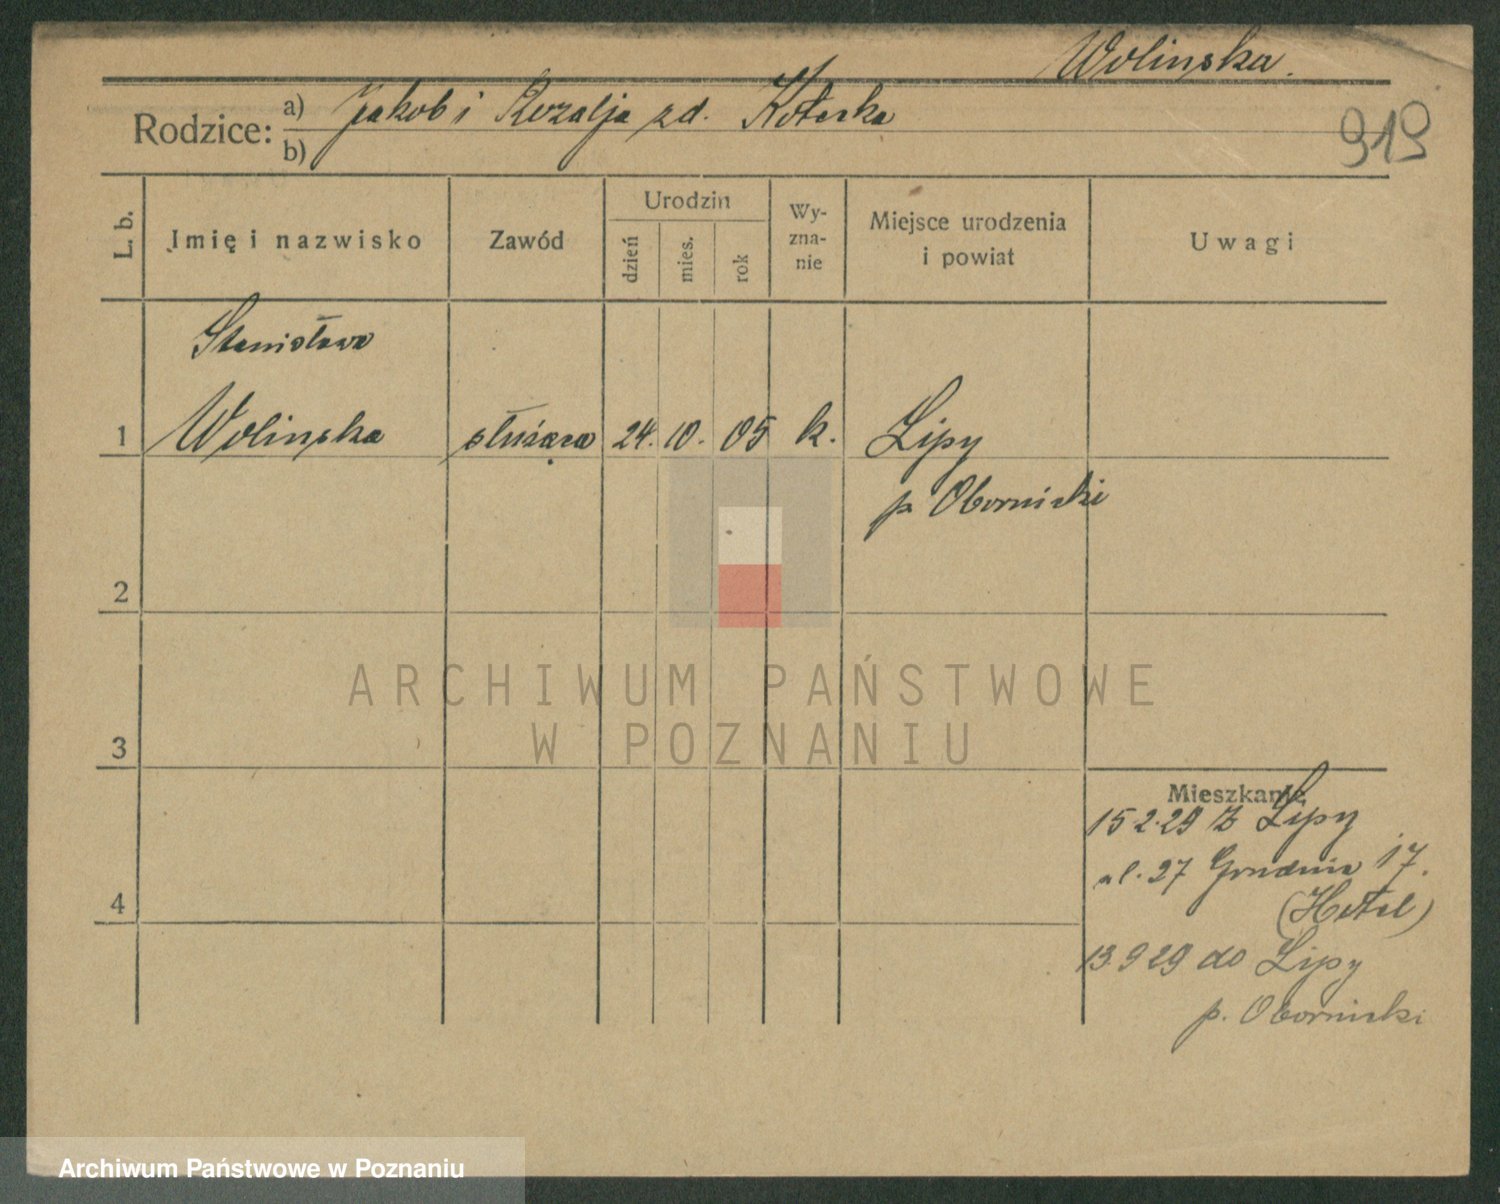 Wolinska.
Rodzice: a) Jakob i Rozalja zd. Koterka
b)
919
L. b.
Imię i nazwisko
Zawód
Urodzin
dzień
mies.
rok
Wy-
zna-
nie
Miejsce urodzenia
i powiat
Uwagi
Stanisława
1 Wolinska służąca 24. 10. 05 k. Lipy
p. Obornicki
2
3
4
Mieszkanie
15 2.29 z Lipy
ul. 27 Grudnia 17.
(Hotel)
13.9 29 do Lipy
p. Obornicki
ARCHIWUM PAŃSTWOWE
W POZNANIU
Archiwum Państwowe w Poznaniu